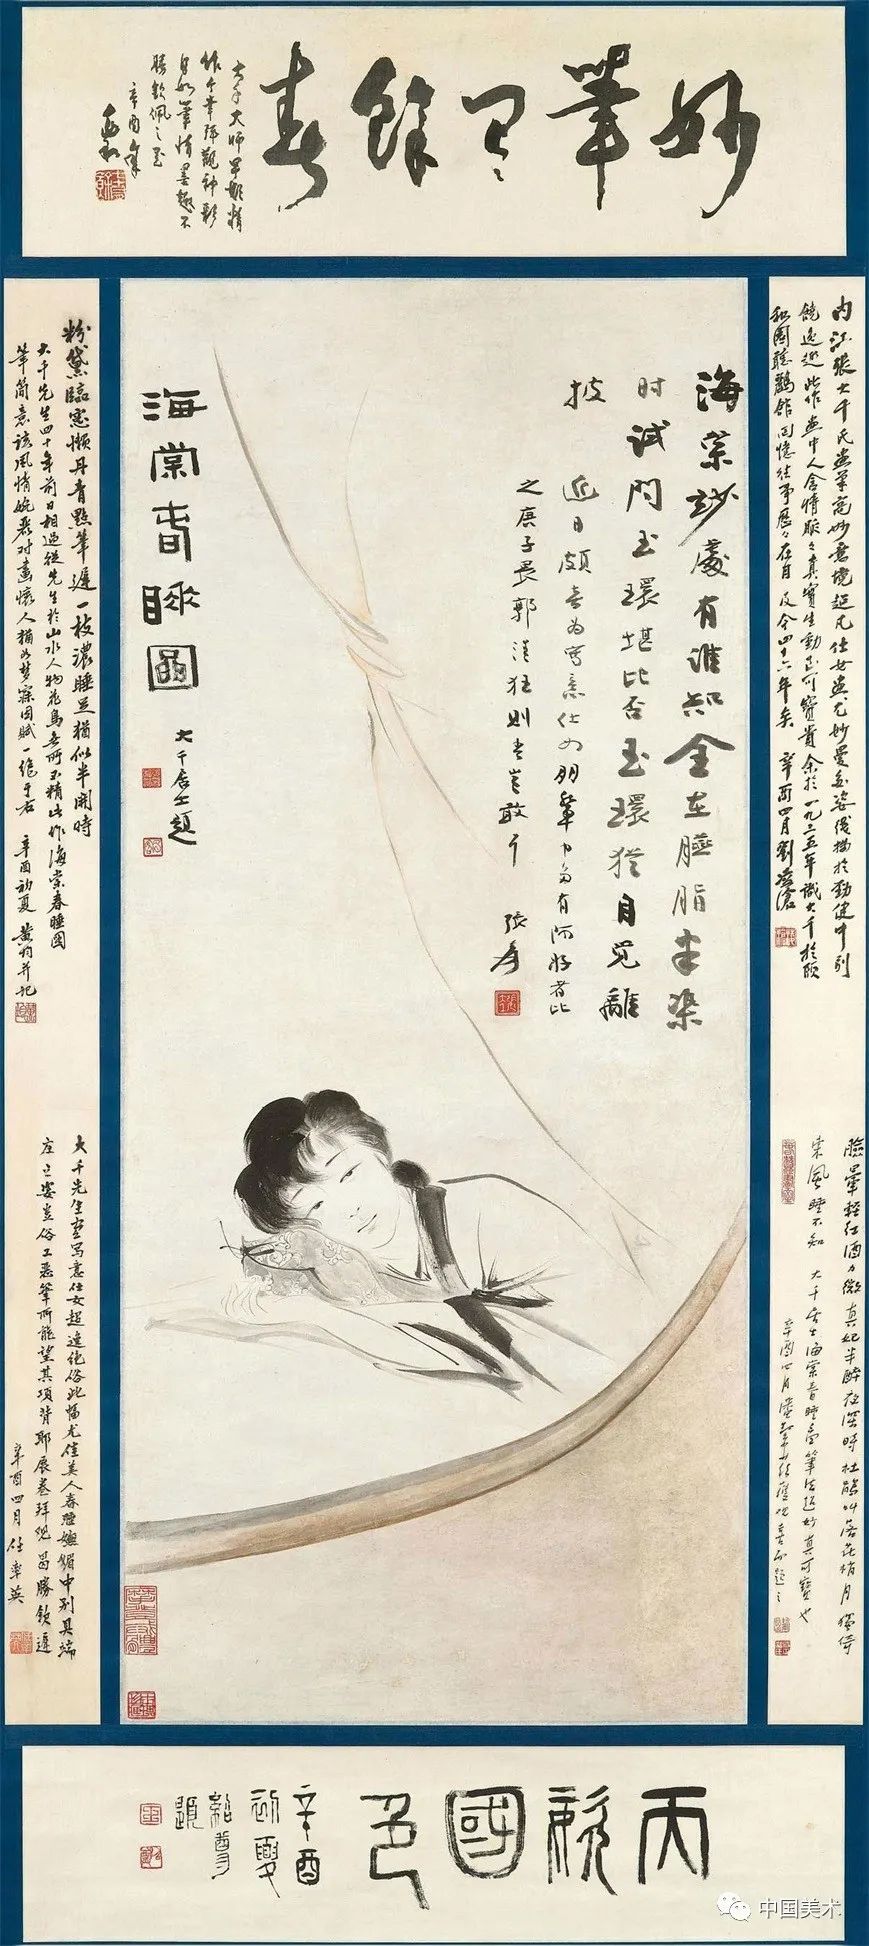 妙筆有餘春
大千大師早歲精
作今幸拜觀神彩
自如筆情墨趣不
勝欽佩之至
辛酉年
内江張大千氏畫筆高妙意境超凡仕女畫尤妙曼多姿綫描於勁健中別
饒逸趣此作畫中人含情脈々真實生動至可寶貴余於一九三五年識大千於頤
和園聽鸝館回憶往事歷々在目及今四十六年矣 辛酉四月劉凌滄
臉暈輕紅酒力微真妃半醉夜深時杜鵑叫落花梢月猶倚
東風睡不知 大千居士海棠春睡圖筆法超妙真可寶也
辛酉四月
海棠妙處有誰知全在臙脂半染
时試問玉環堪比否玉環猶自覺離
披
近日頗喜为寫意仕女朋輩中多有阿好者比
之唐子畏郭清狂則吾豈敢
張爰
海棠春睡圖
大千居士題
粉黛臨窓懶丹青點筆遲一枝濃睡足猶似半開時
大千先生四十年前日相過從先生於山水人物花鳥無所不精此作海棠春睡圖
筆簡意該風情婉麗对畫懷人猶如梦寐因賦一絶於右 辛酉初夏 黄均并記
大千先生寫意仕女超逸絶俗此幅尤佳美人春睡嫵媚中别具端
庄之姿豈俗工惡筆所能望其項背耶展卷拜觀曷勝欽遲
辛酉四月任率英
天姿國色
辛酉
初夏
題
中国美术